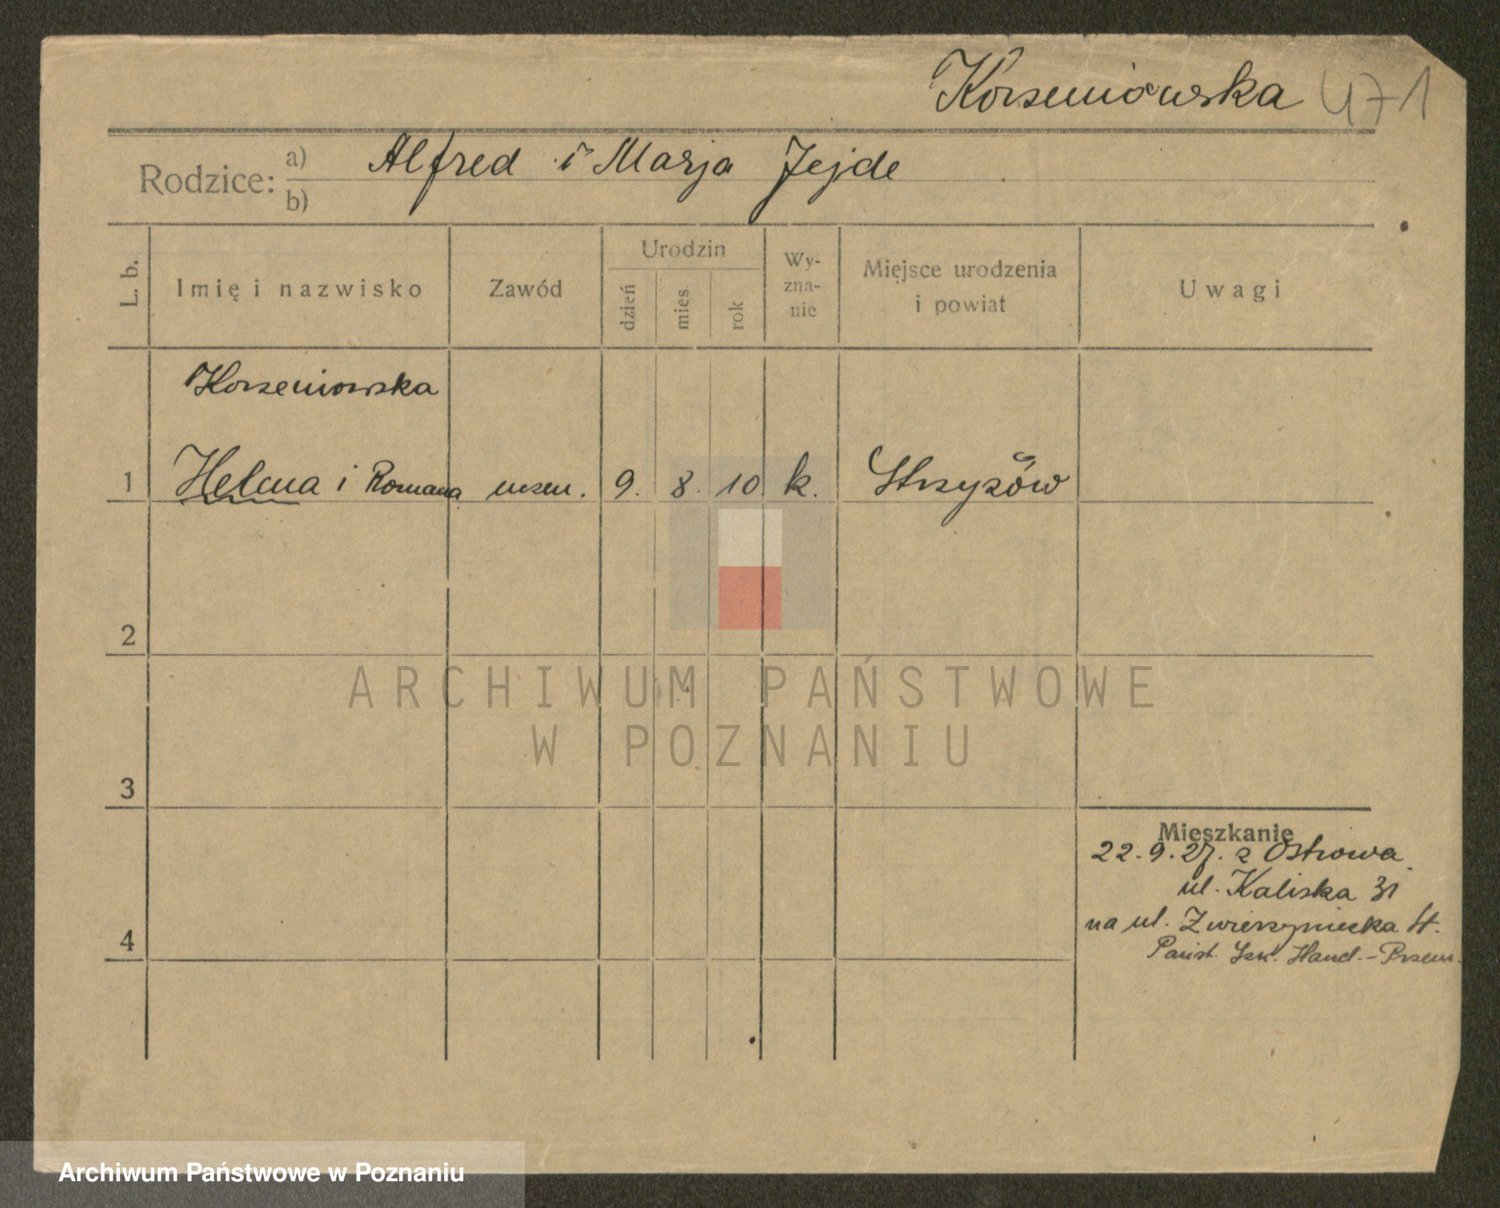 Korzeniowska 471
Rodzice: a) Alfred i Marja Jejde
b)
L. b.
Imię i nazwisko
Zawód
Urodzin
dzień
mies
rok
Wy-
zna-
nie
Miejsce urodzenia
i powiat
Uwagi
Korzeniowska
1 Helena i Romana uczen. 9. 8. 10 k. Strzyżów
2
3
4
Mieszkanie
22.9.27. z Ostrowa
ul. Kaliska 31
na ul. Zwierzyniecka
Państ. Hand.-Przem.
ARCHIWUM PAŃSTWOWE
W POZNANIU
Archiwum Państwowe w Poznaniu